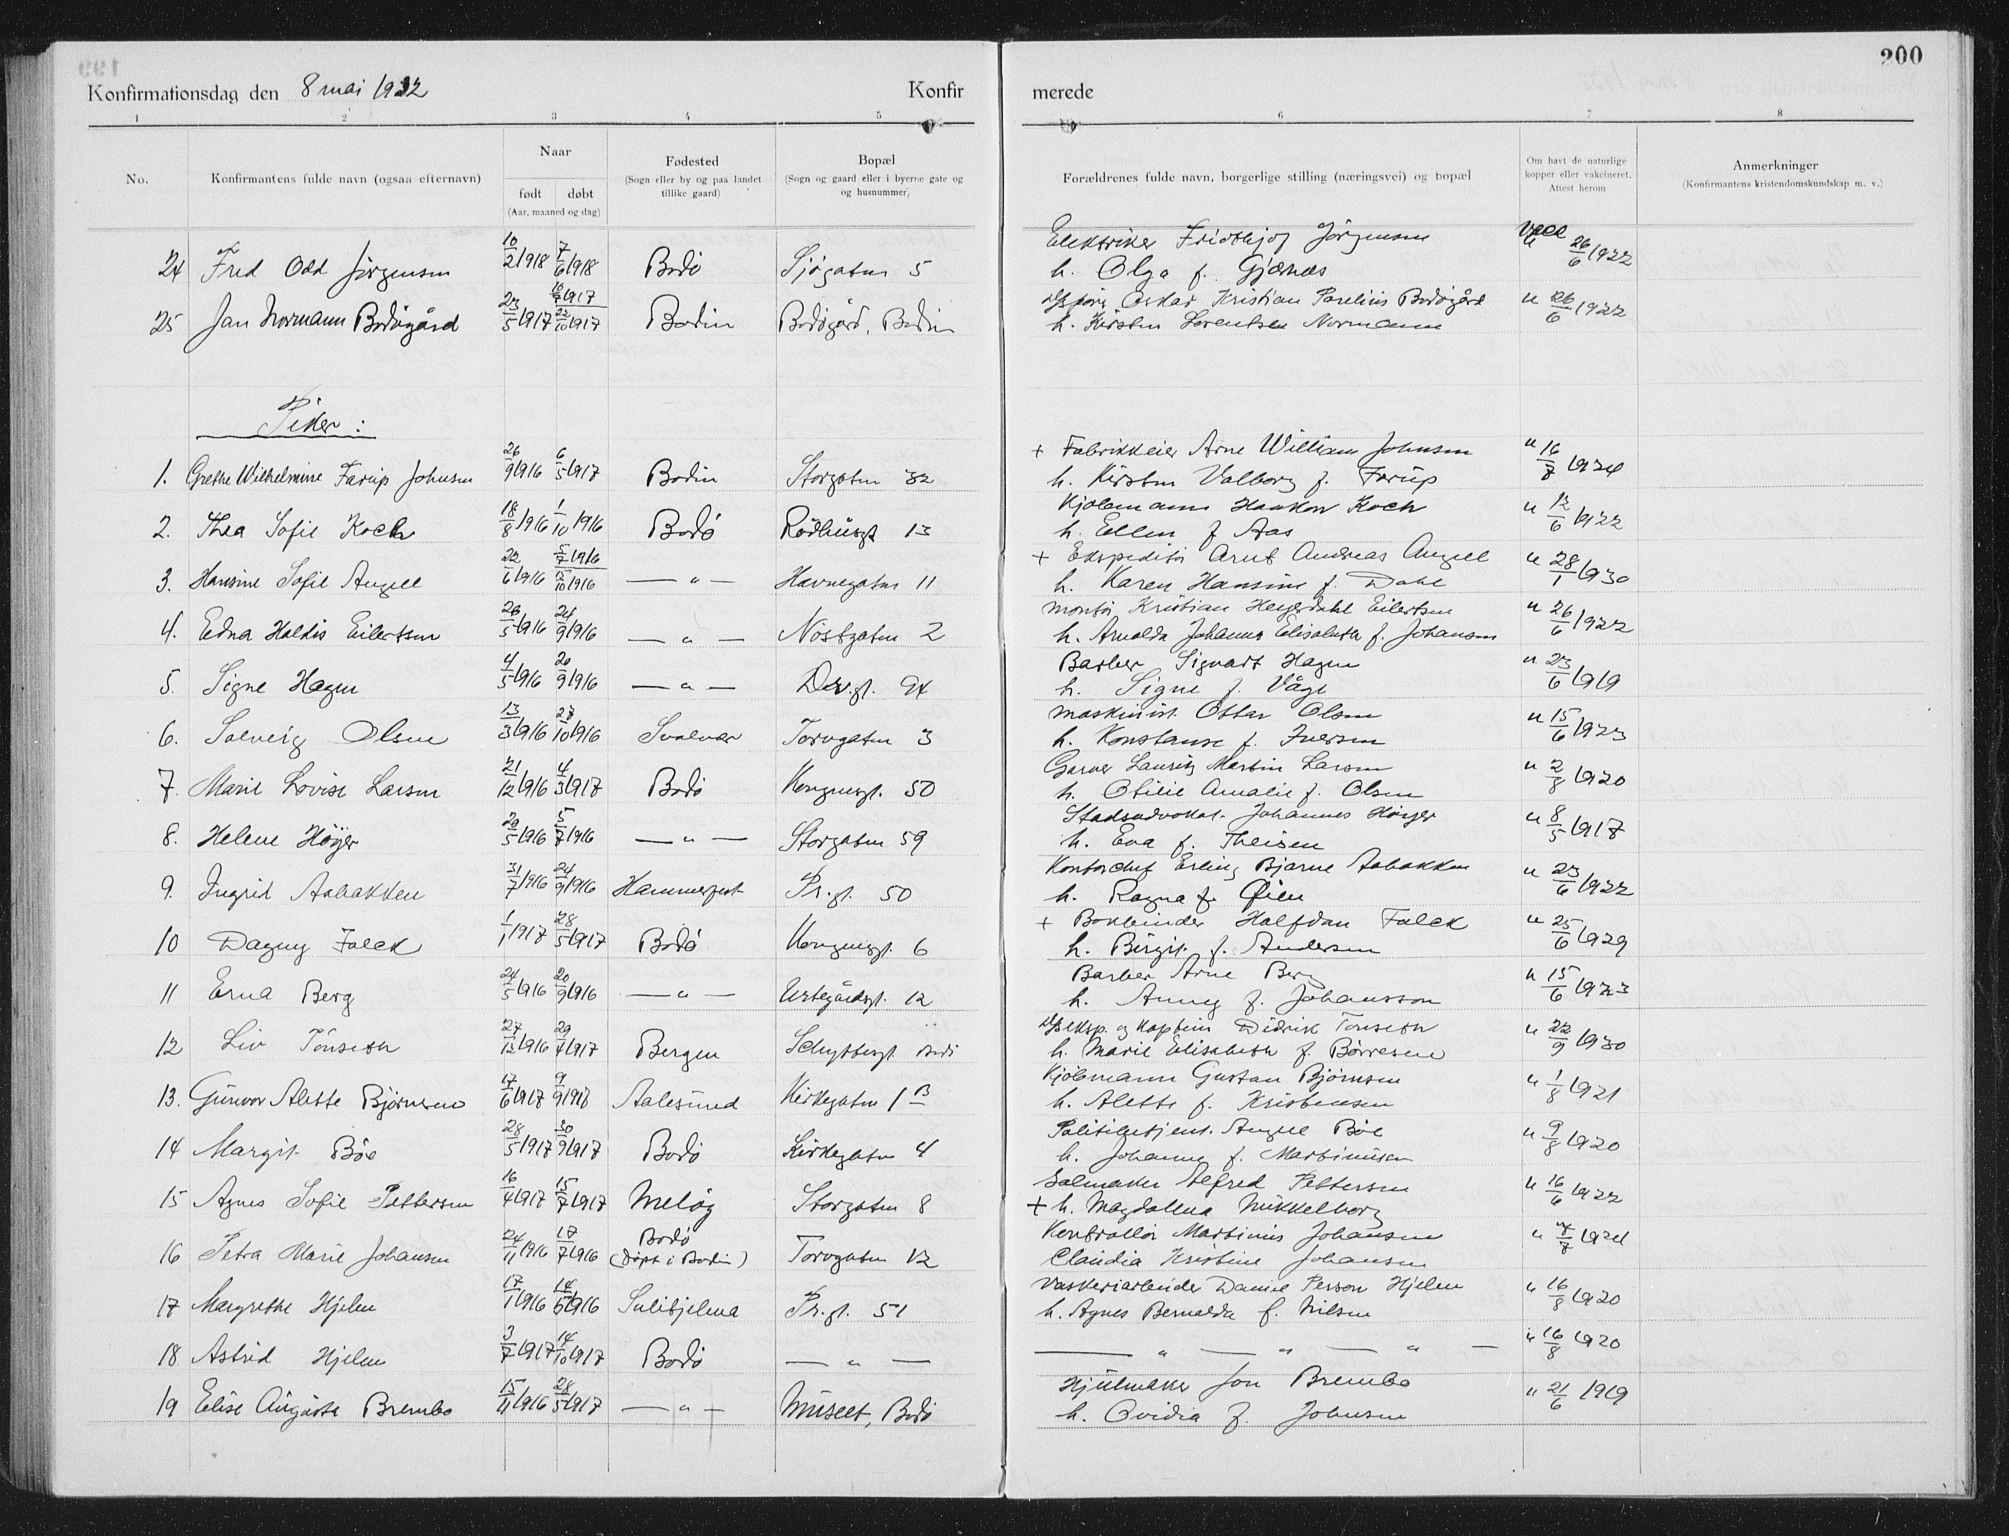 200
Konfirmationsdag den 8 mai 1932 Konfirmerede
1 2 3 4 5 6 7 8
No. Konfirmantens fulde navn (ogsaa efternavn) Naar født døbt (Aar, maaned og dag) Fødested (Sogn eller by og paa landet tillike gaard) Bopæl (Sogn og gaard eller i byerne gate og og husnummer) Forældrenes fulde navn, borgerlige stilling (næringsvei) og bopæl Om havt de naturlige kopper eller vakcineret. Attest herom Anmerkninger (Konfirmantens kristendomskundskap m. v.)
24 Fred Odd Jørgensen 10/2 1918 7/6 1918 Bodø Sjøgaten 5 Elektriker Fridthjof Jørgensen h. Olga f. Gjænæs Vacc 26/6 1922
25 Jan Normann Bodøgård 23/5 1917 22/10 1917 Bodin Bodøgård, Bodin Oskar Kristian Parelius Bodøgård h. Kirsten Lorentsen Normann " 26/6 1922
Piker:
1. Grethe Wilhelmine Farup Johnsen 26/9 1916 6/5 1917 Bodin Storgaten 32 + Fabrikkeier Arne William Johnsen h. Kirsten Valborg f. Farup " 16/7 1924
2. Thea Sofie Koch 18/8 1916 1/10 1916 Bodø Rådhusgt 13 Kjøbmann Haakon Koch h. Ellen f. Aas " 12/6 1922
3. Hansine Sofie Angell 22/6 1916 5/7 1916 5/10 1916 — " — Havnegaten 11 + Ekspeditør Arnt Andreas Angell h. Karen Hansine f. Dahl " 28/1 1930
4. Edna Haldis Eilertsen 26/5 1916 24/9 1916 — " — Nöstgaten 2 Montør Kristian Heyerdahl Eilertsen h. Arnolda Johanna Elisabeth f. Johansen " 26/6 1922
5. Signe Hagen 4/5 1916 20/9 1916 — " — Dr.gt. 94 Barber Sigvart Hagen h. Signe f. Våge " 23/6 1919
6. Solveig Olsen 13/3 1916 27/10 1916 Svolvær Torvgaten 3 Maskinist Ottar Olsen h. Konstanse f. Iversen " 15/6 1923
7. Marie Lovise Larsen 21/12 1916 4/3 1917 Bodø Kongensgt. 50 Garver Lauritz Martin Larsen h. Otilie Amalie f. Olsen " 2/8 1920
8. Helene Höyer 20/5 1916 5/7 1916 — " — Storgaten 59 Stadsadvokat Johannes Höyer h. Eva f. Theisen " 8/5 1917
9. Ingrid Aabakken 31/7 1916 24/9 1916 Hammerfest Pr.gt. 50 Kontorchef Erling Bjarne Aabakken h. Ragna f. Øien " 23/6 1922
10 Dagny Falck 1/1 1917 28/5 1917 Bodø Kongensgt. 6 + Bokbinder Halfdan Falck h. Birgit f. Andersen " 25/6 1929
11 Erna Berg 24/5 1916 20/9 1916 — " — Urtegårdsgt. 12 Barber Arne Berg h. Anny f. Johansson " 15/6 1923
12 Liv Tönseth 27/12 1916 29/4 1917 Bergen Schyttesgt. Bodø Kaptein Didrik Tönseth h. Marie Elisabeth f. Börresen " 22/9 1930
13. Gunvor Alette Bjørnsen 17/6 1917 9/9 1918 Aalesund Kirkegaten 1 B Kjøbmann Gustav Bjørnsen h. Alette f. Kristensen " 1/8 1921
14 Margit Böe 28/5 1917 30/9 1917 Bodø Kirkegaten 4 Politibetjent Angell Böe h. Johanne f. Martinussen " 9/8 1920
15 Agnes Sofie Pettersen 16/4 1917 15/7 1917 Meløy Storgaten 8 Salmaker Alfred Pettersen + h. Magdalena Mikkelborg " 16/6 1922
16 Petra Marie Johansen 24/11 1916 17/7 1916 Bodø (Döpt i Bodin) Torvgaten 12 Kontrollör Martinius Johansen Claudia Kristine Johansen " 7/7 1921
17 Margrethe Hjelen 17/1 1916 14/6 1916 Sulitjelma Pr.gt. 51 Vaskeriarbeider Daniel Person Hjelen h. Agnes Bernalda f. Nilsen " 16/8 1920
18 Astrid Hjelen 3/7 1917 14/10 1917 Bodø — " — — " — " — " — " 16/8 1920
19 Elise Augusta Brembo 15/11 1916 28/5 1917 — " — Museet, Bodø Hjulmaker Jon Brembo h. Ovidia f. Johnsen " 21/6 1919